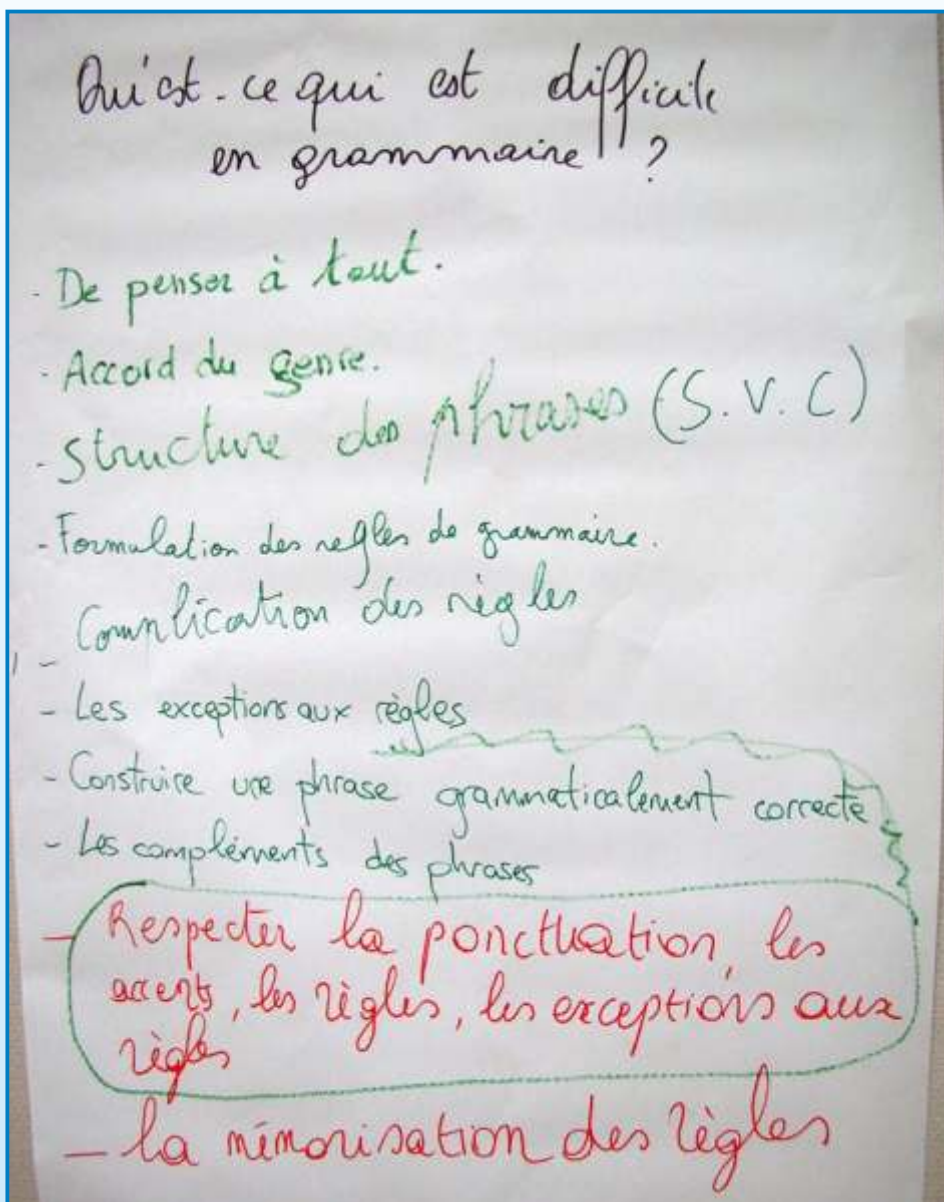 Qu'est-ce qui est difficile
en grammaire ?
- De penser à tout.
- Accord du genre.
- structure des phrases (S.V.C)
- Formulation des règles de grammaire.
- Complication des règles
- Les exceptions aux règles
- Construire une phrase grammaticalement correcte
- Les compléments des phrases
- Respecter la ponctuation, les
accents, les règles, les exceptions aux
règles
- la mémorisation des règles